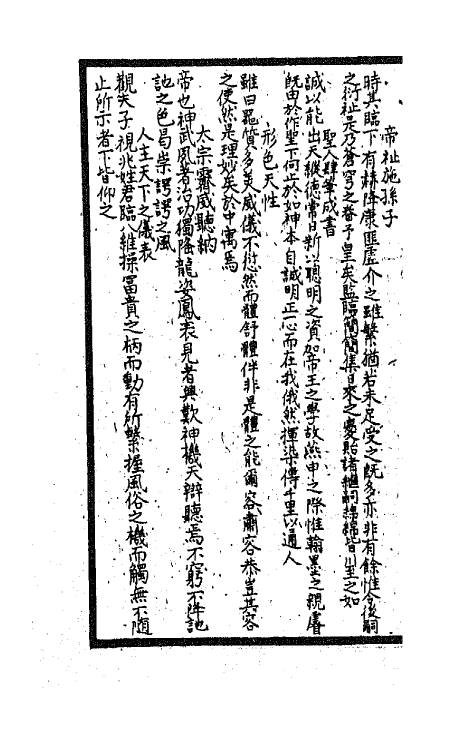 帝祉施孫子
時其臨下有赫降康匪虛介之雖繁猶若未足受之旣多亦非有餘惟今後嗣
之衍祉是乃蒼穹之眷予皇矣監臨簡簡集日來之慶貽諸繼嗣綿綿皆川至之如
聖人肆筆成書
誠以能出天縱德常日新以聰明之資加帝王之學故燕申之際惟翰墨之親睿
旣由於作聖下何止於如神本自誠明正一心而在我俄然揮染傳千里以通人
形色天性
雖曰器質多美威儀不愆然而體舒體胖非是體之能爾容肅容恭豈其容
之使然是理妙矣於中寓焉
太宗霽威聽納
帝也神武夙著治功獨隆龍姿鳳表見者興歎神機天辯聽焉不窮不阵訑
訑之色曷崇諤諤之風
人主天下之儀表
觀夫子視兆姓君臨八維操富貴之柄而動有所繫握風俗之機而觸無不隨
止所示者下皆仰之